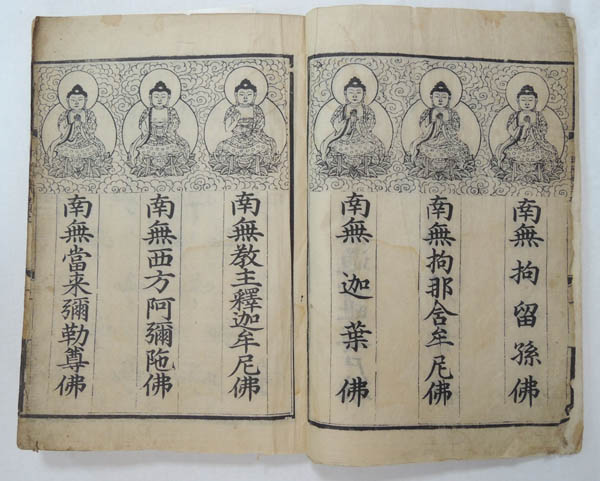 南無拘留孫佛
南無拘那含牟尼佛
南無迦葉佛
南無教主釋迦牟尼佛
南無西方阿彌陁佛
南無當来彌勒尊佛